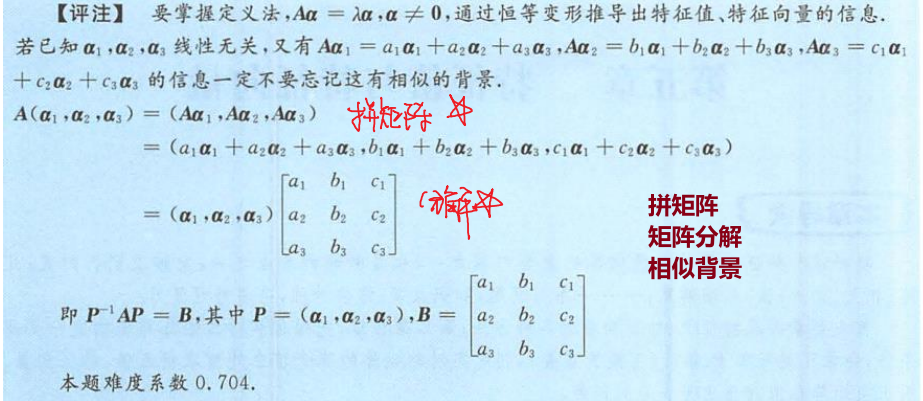 【评注】 要掌握定义法,Aα = λα,α ≠ 0,通过恒等变形推导出特征值、特征向量的信息.
若已知 α₁,α₂,α₃ 线性无关,又有 Aα₁ = a₁α₁ + a₂α₂ + a₃α₃,Aα₂ = b₁α₁ + b₂α₂ + b₃α₃,Aα₃ = c₁α₁
+ c₂α₂ + c₃α₃ 的信息一定不要忘记这有相似的背景.
A(α₁,α₂,α₃) = (Aα₁,Aα₂,Aα₃) 拼矩阵
= (a₁α₁ + a₂α₂ + a₃α₃,b₁α₁ + b₂α₂ + b₃α₃,c₁α₁ + c₂α₂ + c₃α₃)
a₁ b₁ c₁
= (α₁,α₂,α₃) a₂ b₂ c₂
a₃ b₃ c₃
拼矩阵
矩阵分解
相似背景
a₁ b₁ c₁
即 P⁻¹AP = B,其中 P = (α₁,α₂,α₃),B = a₂ b₂ c₂
a₃ b₃ c₃
本题难度系数 0.704.